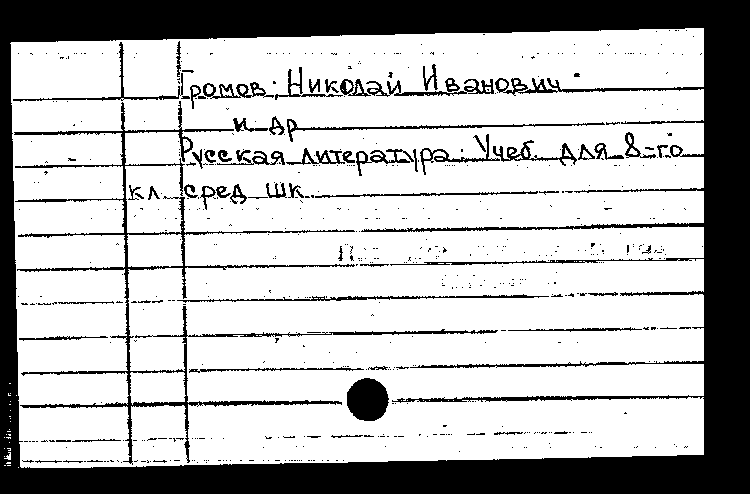 Громов, Николай Иванович
и др
Русская литература: Учеб. для 8-го
кл. сред шк.